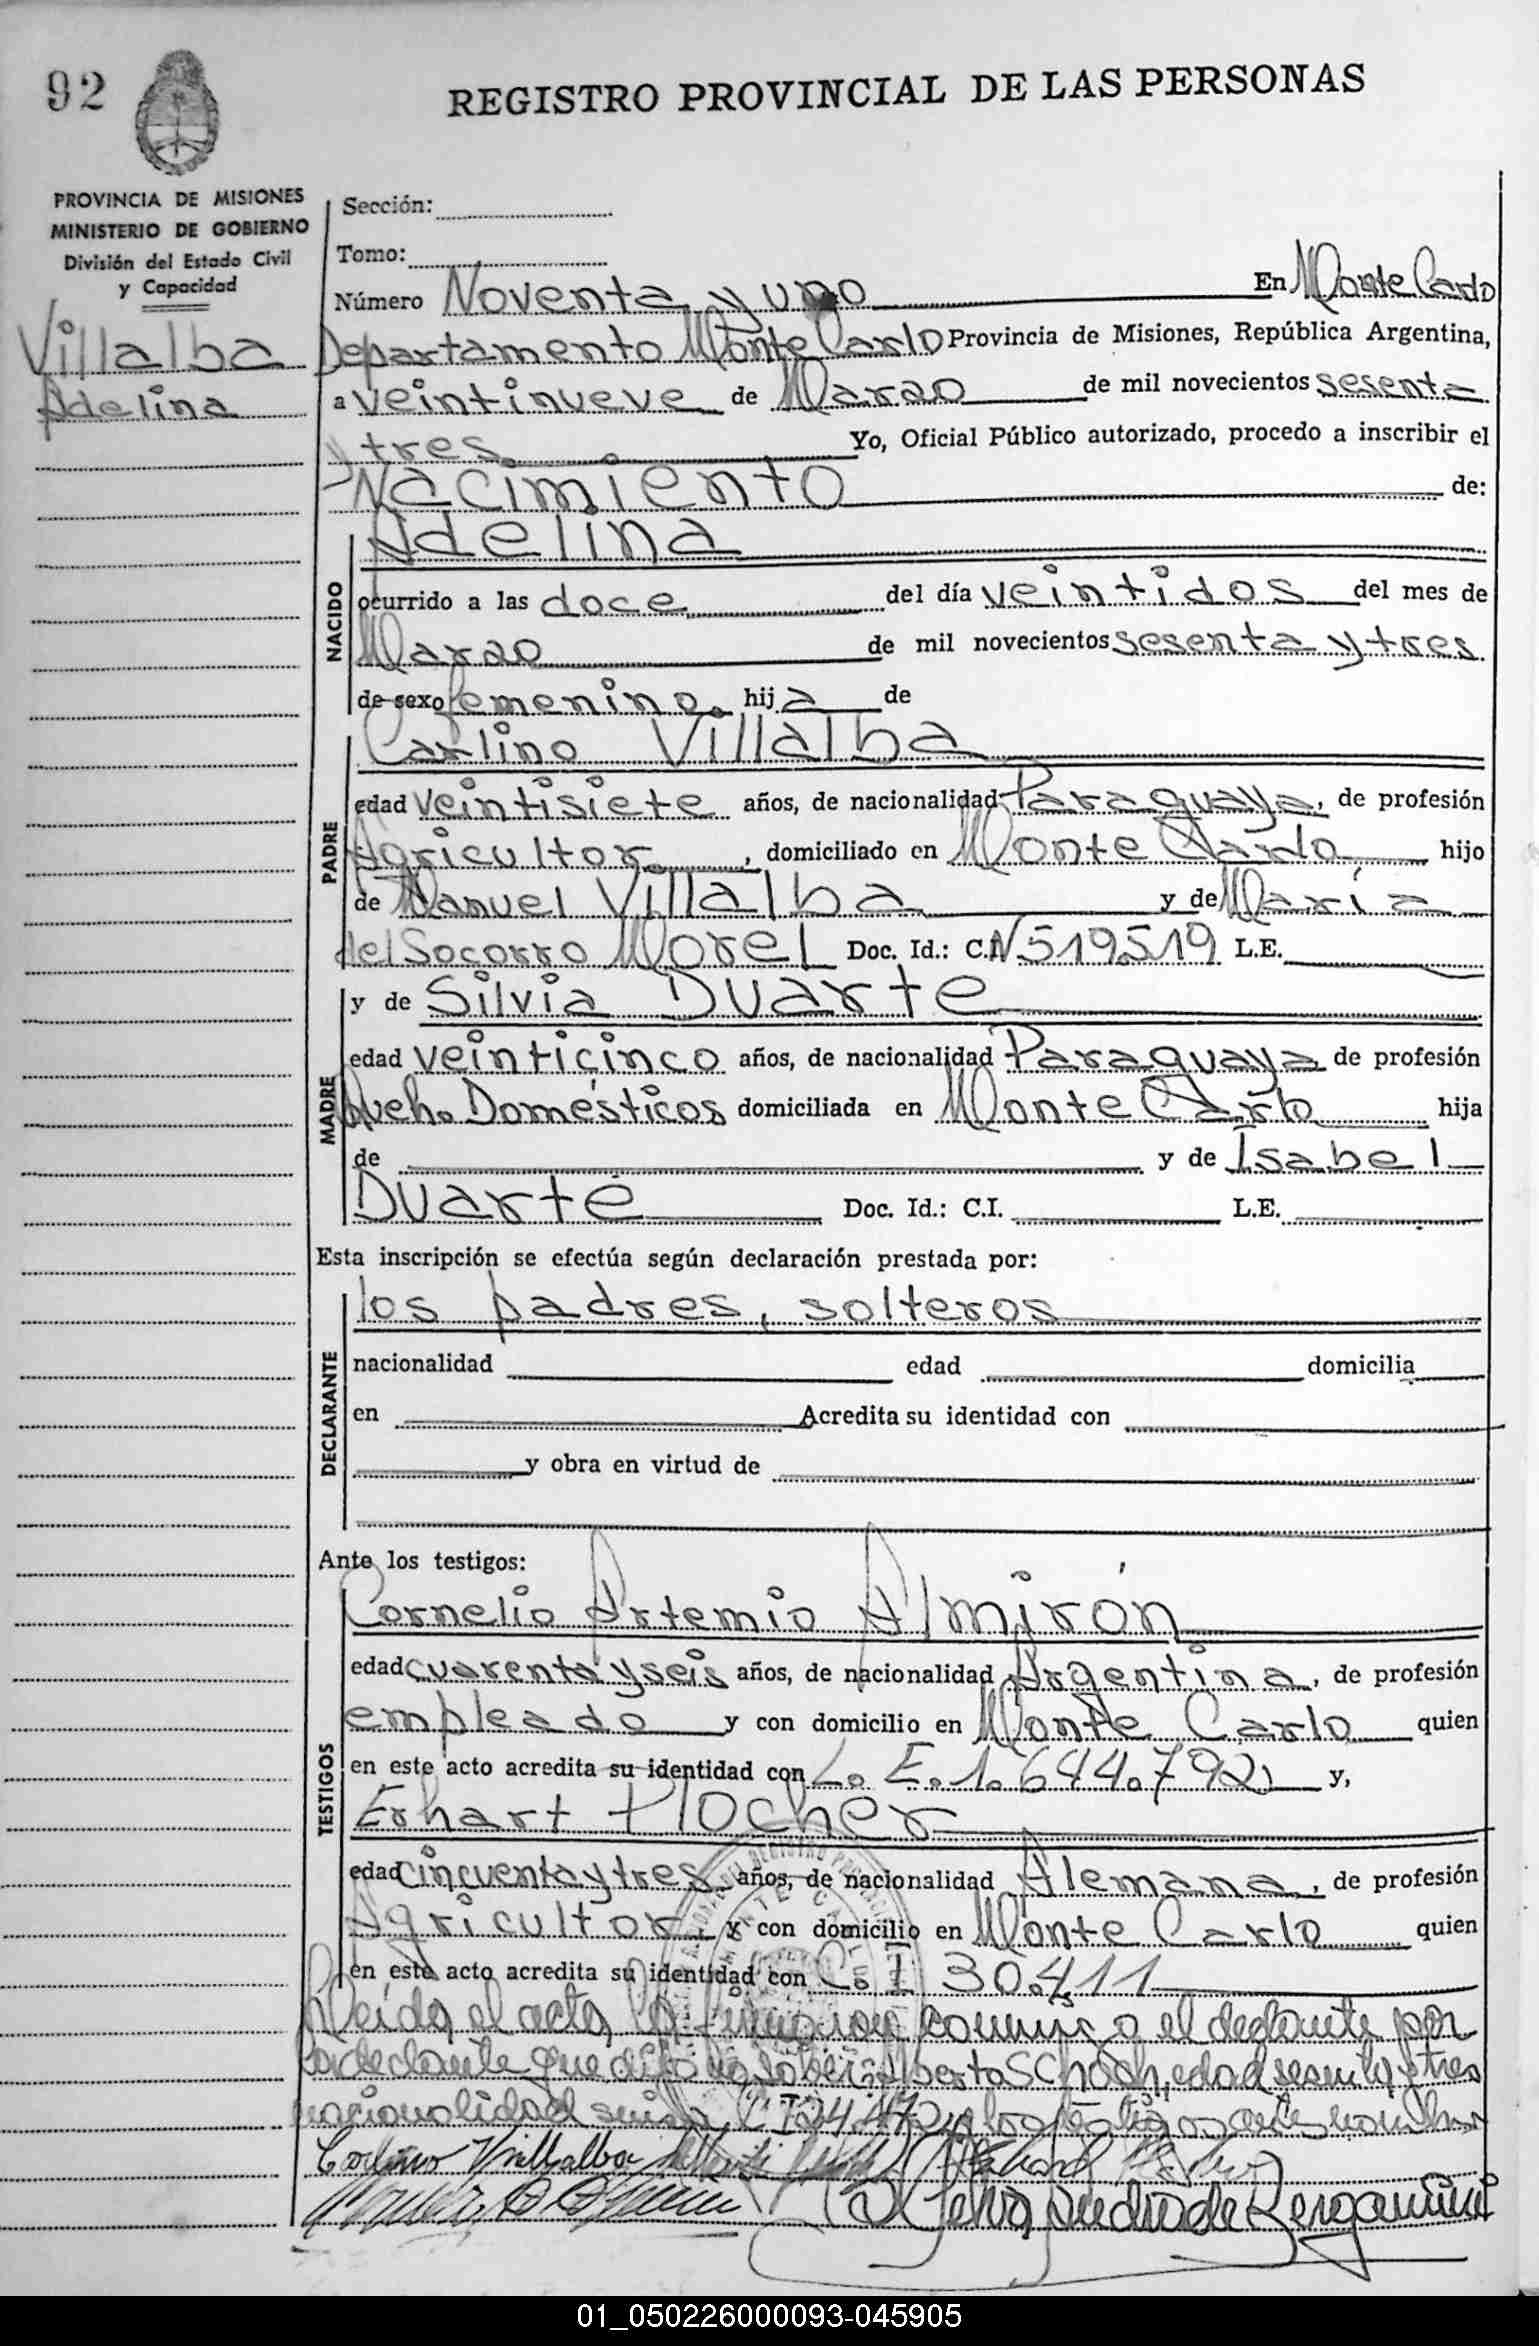 92
REGISTRO PROVINCIAL DE LAS PERSONAS
PROVINCIA DE MISIONES
MINISTERIO DE GOBIERNO
División del Estado Civil
y Capacidad
Villalba
Adelina
Sección:
Tomo:
Número Noventa y uno En Monte Carlo
Departamento Monte Carlo Provincia de Misiones, República Argentina,
a veintinueve de Marzo de mil novecientos sesenta
y tres Yo, Oficial Público autorizado, procedo a inscribir el
Nacimiento de:
NACIDO
Adelina
ocurrido a las doce del día veintidos del mes de
Marzo de mil novecientos sesenta y tres
de sexo femenino. hij a de
PADRE
Carlino Villalba
edad veintisiete años, de nacionalidad Paraguaya, de profesión
Agricultor, domiciliado en Monte Carlo hijo
de Manuel Villalba y de María
del Socorro Morel Doc. Id.: C.I. Nº 519.519 L.E.
MADRE
y de Silvia Duarte
edad veinticinco años, de nacionalidad Paraguaya de profesión
Queh. Domésticos domiciliada en Monte Carlo hija
de y de Isabel
Duarte Doc. Id.: C.I. L.E.
Esta inscripción se efectúa según declaración prestada por:
DECLARANTE
los padres, solteros
nacionalidad edad domicilia
en Acredita su identidad con
y obra en virtud de
Ante los testigos:
TESTIGOS
Cornelio Artemio Almirón
edad cuarenta y seis años, de nacionalidad Argentina, de profesión
empleado y con domicilio en Monte Carlo quien
en este acto acredita su identidad con L. E. 1.644.792 y,
Erhart Plocher
edad cincuenta y tres años, de nacionalidad Alemana, de profesión
Agricultor, y con domicilio en Monte Carlo quien
en este acto acredita su identidad con C. I 30.411
Leída el acta, la firman conmigo el declarante por
la declarante que dijo no saber: Alberto Schoch, edad sesenta y tres
nacionalidad suiza, C I 24.472 y los testigos
Carlino Villalba
de Bergamini
01_050226000093-045905